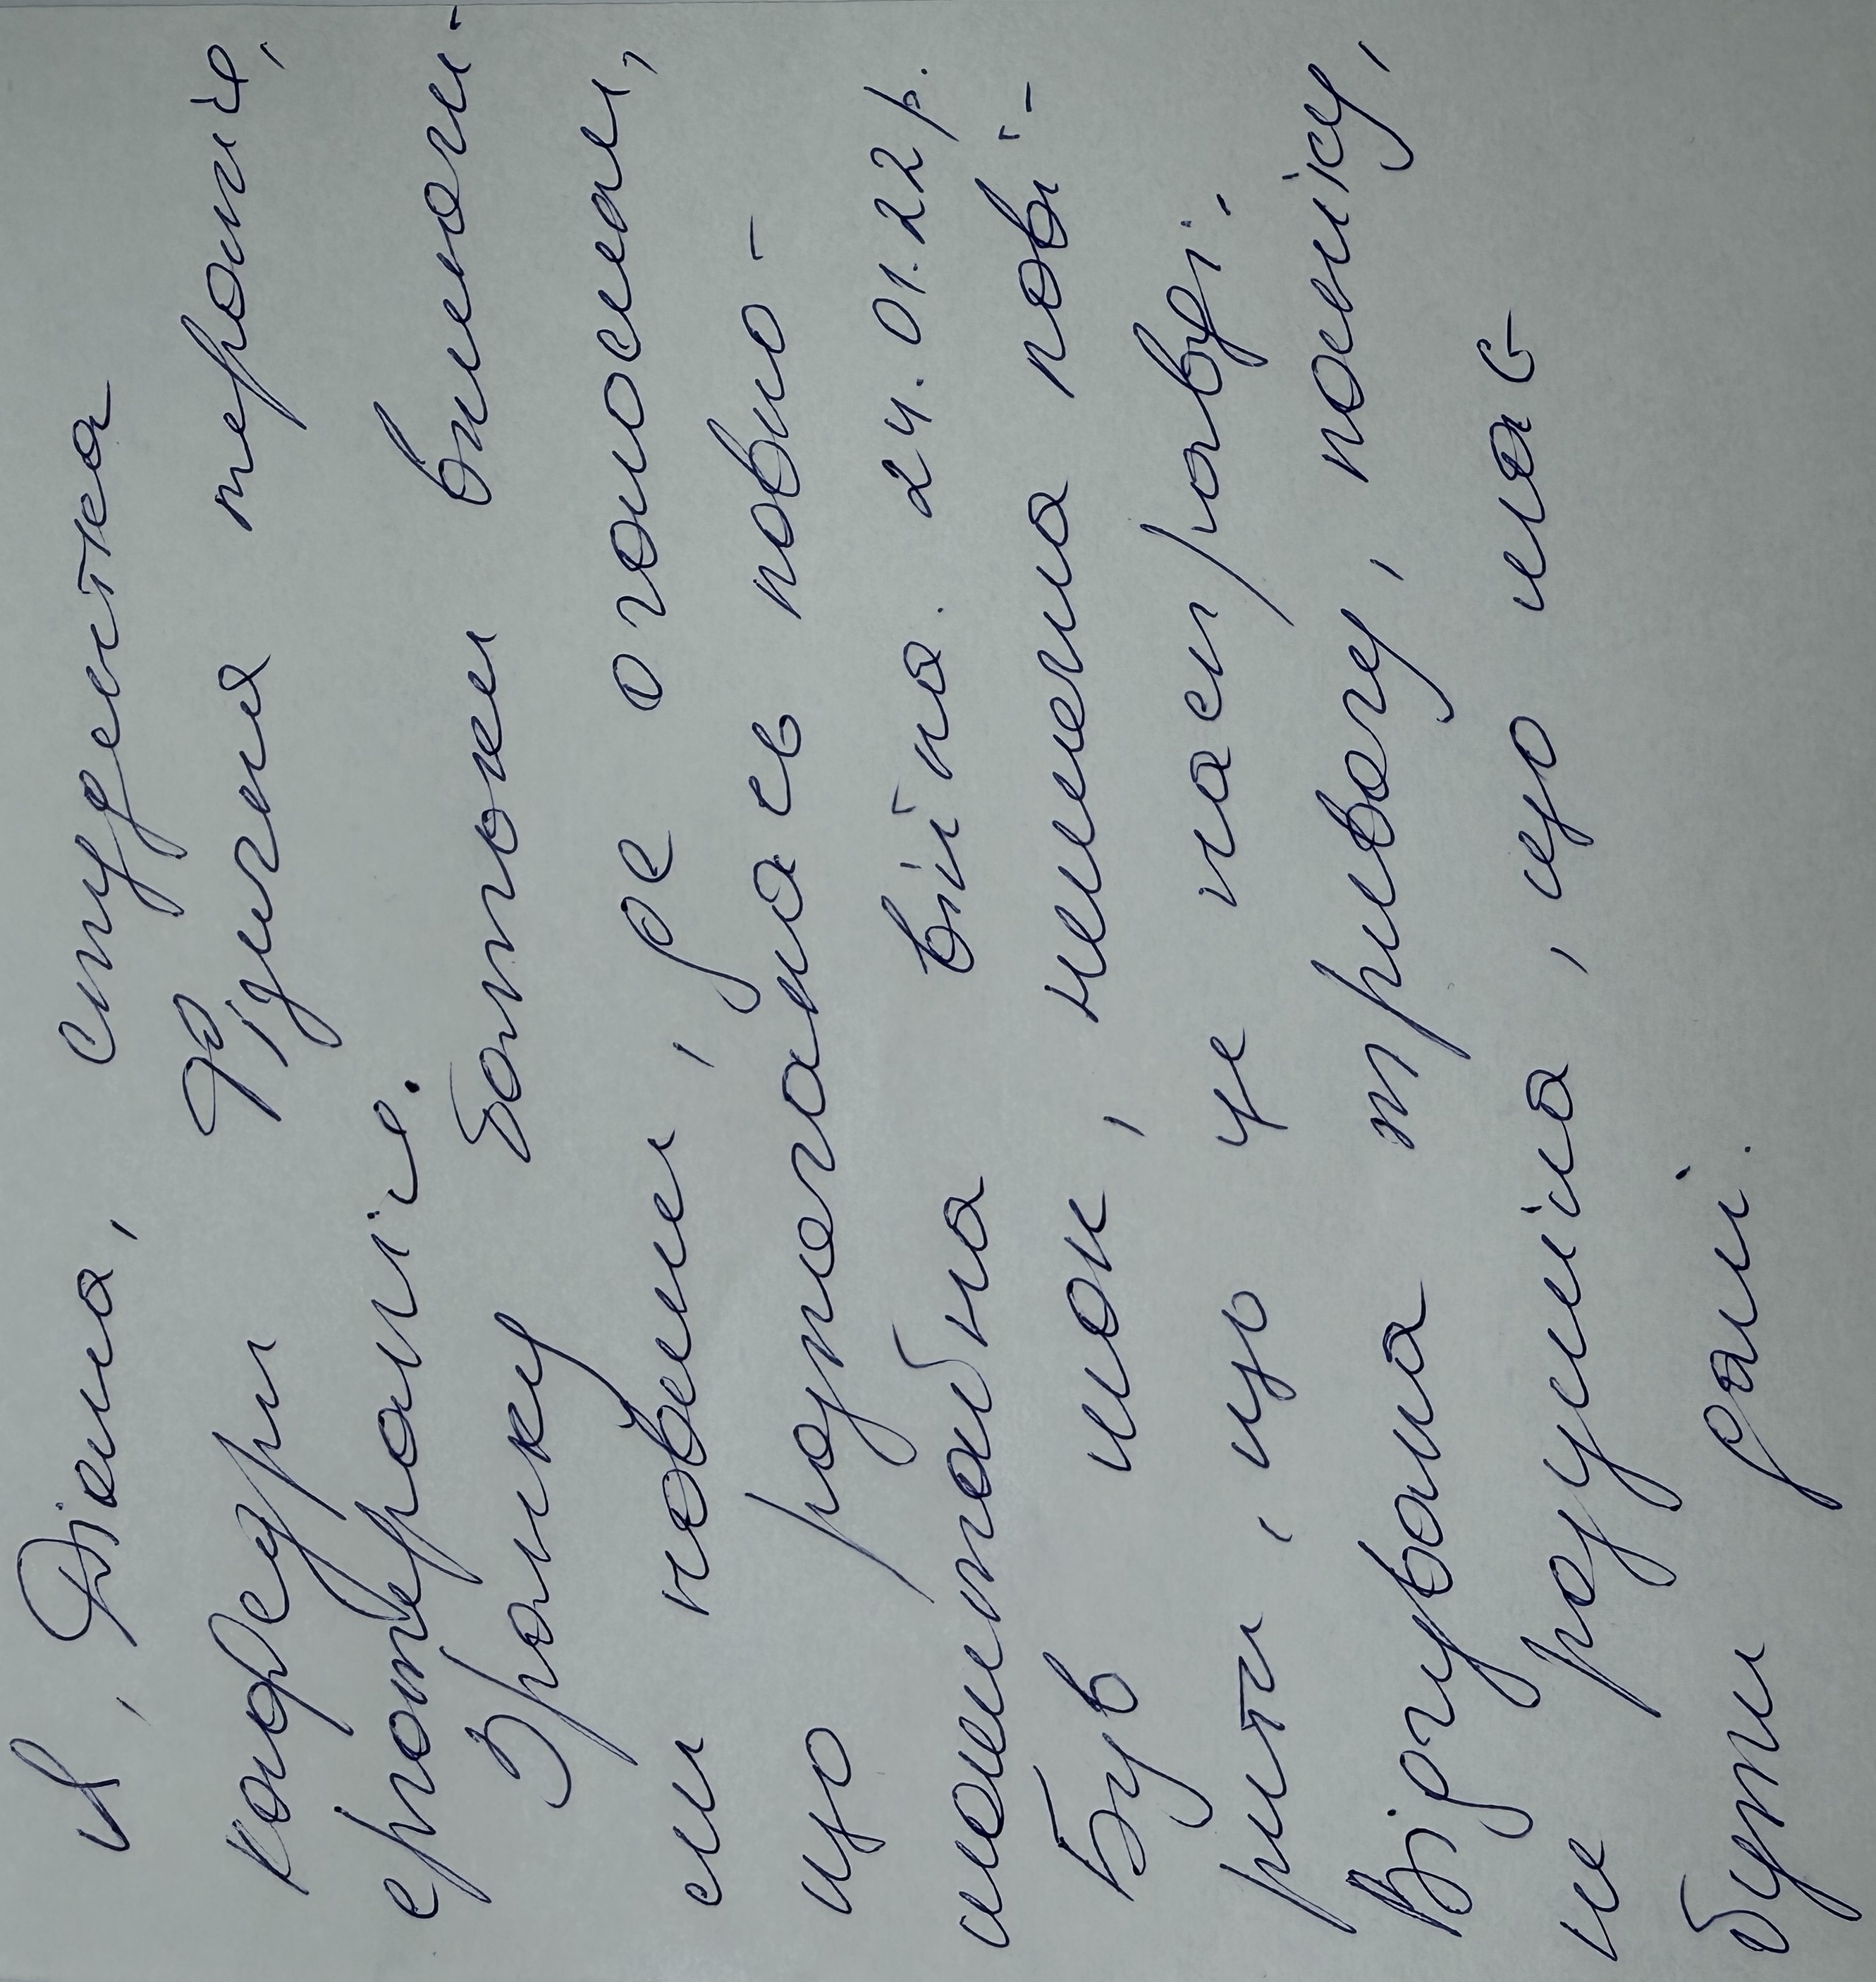 Я, Діана, студентка
кафедри Фізична терапія,
ерготерапія.
Зранку батьки включи-
ли новини, де оголосили,
що розпочалась повно-
масштабна війна. 24.01.22р.
Був шок, неможна пові-
рити, що це насправді.
Відчувала тривогу, паніку,
не розуміла, що має
бути далі.